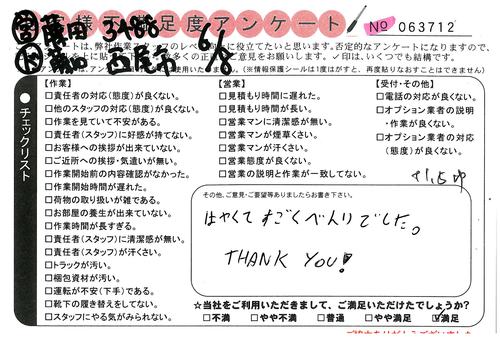 様満足度アンケート
No 063712
藤田 3488 6/8
西尾市
トは、弊社作業スタッフのレベル向上に役立てたいと思います。否定的なアンケートになりますので、
多くの正直なご意見をお願いします。✓印は、いくつでも結構です。
(※情報保護シールは1度はがすと、再度貼りなおすことはできません)
チェックリスト
【作業】
□責任者の対応(態度)が良くない。
□他のスタッフの対応(態度)が良くない。
□作業を見ていて不安がある。
□責任者(スタッフ)に好感が持てない。
□お客様への挨拶が出来ていない。
□ご近所への挨拶・気遣いが無い。
□作業開始前の内容確認がなかった。
□作業開始時間が遅れた。
□荷物の取り扱いが雑である。
□お部屋の養生が出来ていない。
□作業時間が長すぎる。
□責任者(スタッフ)に清潔感が無い。
□責任者(スタッフ)が汗くさい。
□トラックが汚い。
□梱包資材が汚い。
□運転が不安(下手)である。
□靴下の履き替えをしてない。
□スタッフにやる気がみられない。
【営業】
□見積もり時間に遅れた。
□見積もり時間が長い。
□営業マンに清潔感が無い。
□営業マンが煙草くさい。
□営業マンが汗くさい。
□営業態度が良くない。
□営業の説明と作業が一致してない。
【受付・その他】
□電話の対応が良くない。
□オプション業者の説明
・作業が良くない。
□オプション業者の対応
(態度)が良くない。
その他、ご意見・ご要望等ありましたらお書き下さい。
はやくて すごくべんりでした。
THANK YOU!
☆当社をご利用いただきまして、ご満足いただけたでしょうか?
□不満 □やや不満 □普通 □やや満足 ☑満足